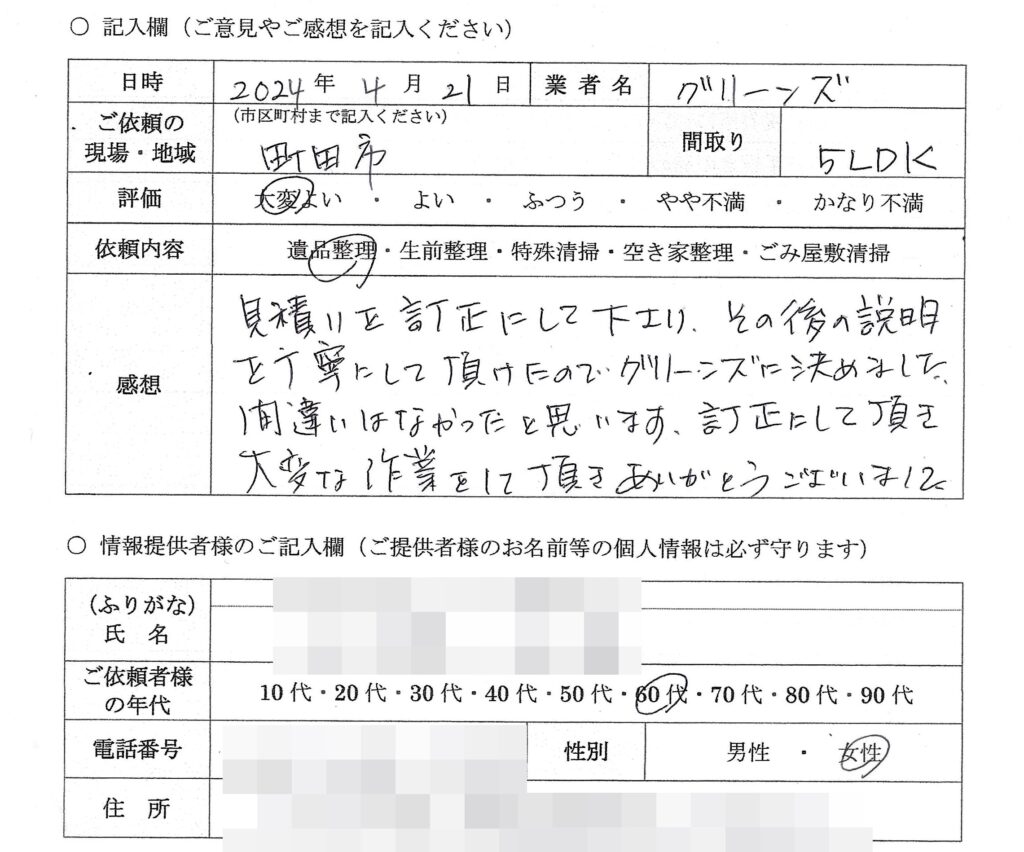 ○ 記入欄（ご意見やご感想を記入ください）
日時 2024年 4月 21日 業者名 グリーンズ
ご依頼の現場・地域 （市区町村まで記入ください） 町田市 間取り 5LDK
評価 大変よい ・ よい ・ ふつう ・ やや不満 ・ かなり不満
依頼内容 遺品整理・生前整理・特殊清掃・空き家整理・ごみ屋敷清掃
感想
見積りを訂正にして下さり、その後の説明
を丁寧にして頂けたのでグリーンズに決めました、
間違いはなかったと思います、訂正にして頂き
大変な作業をして頂きありがとうございました
○ 情報提供者様のご記入欄（ご提供者様のお名前等の個人情報は必ず守ります）
（ふりがな）
氏 名
ご依頼者様の年代 10代・20代・30代・40代・50代・60代・70代・80代・90代
電話番号 性別 男性 ・ 女性
住 所